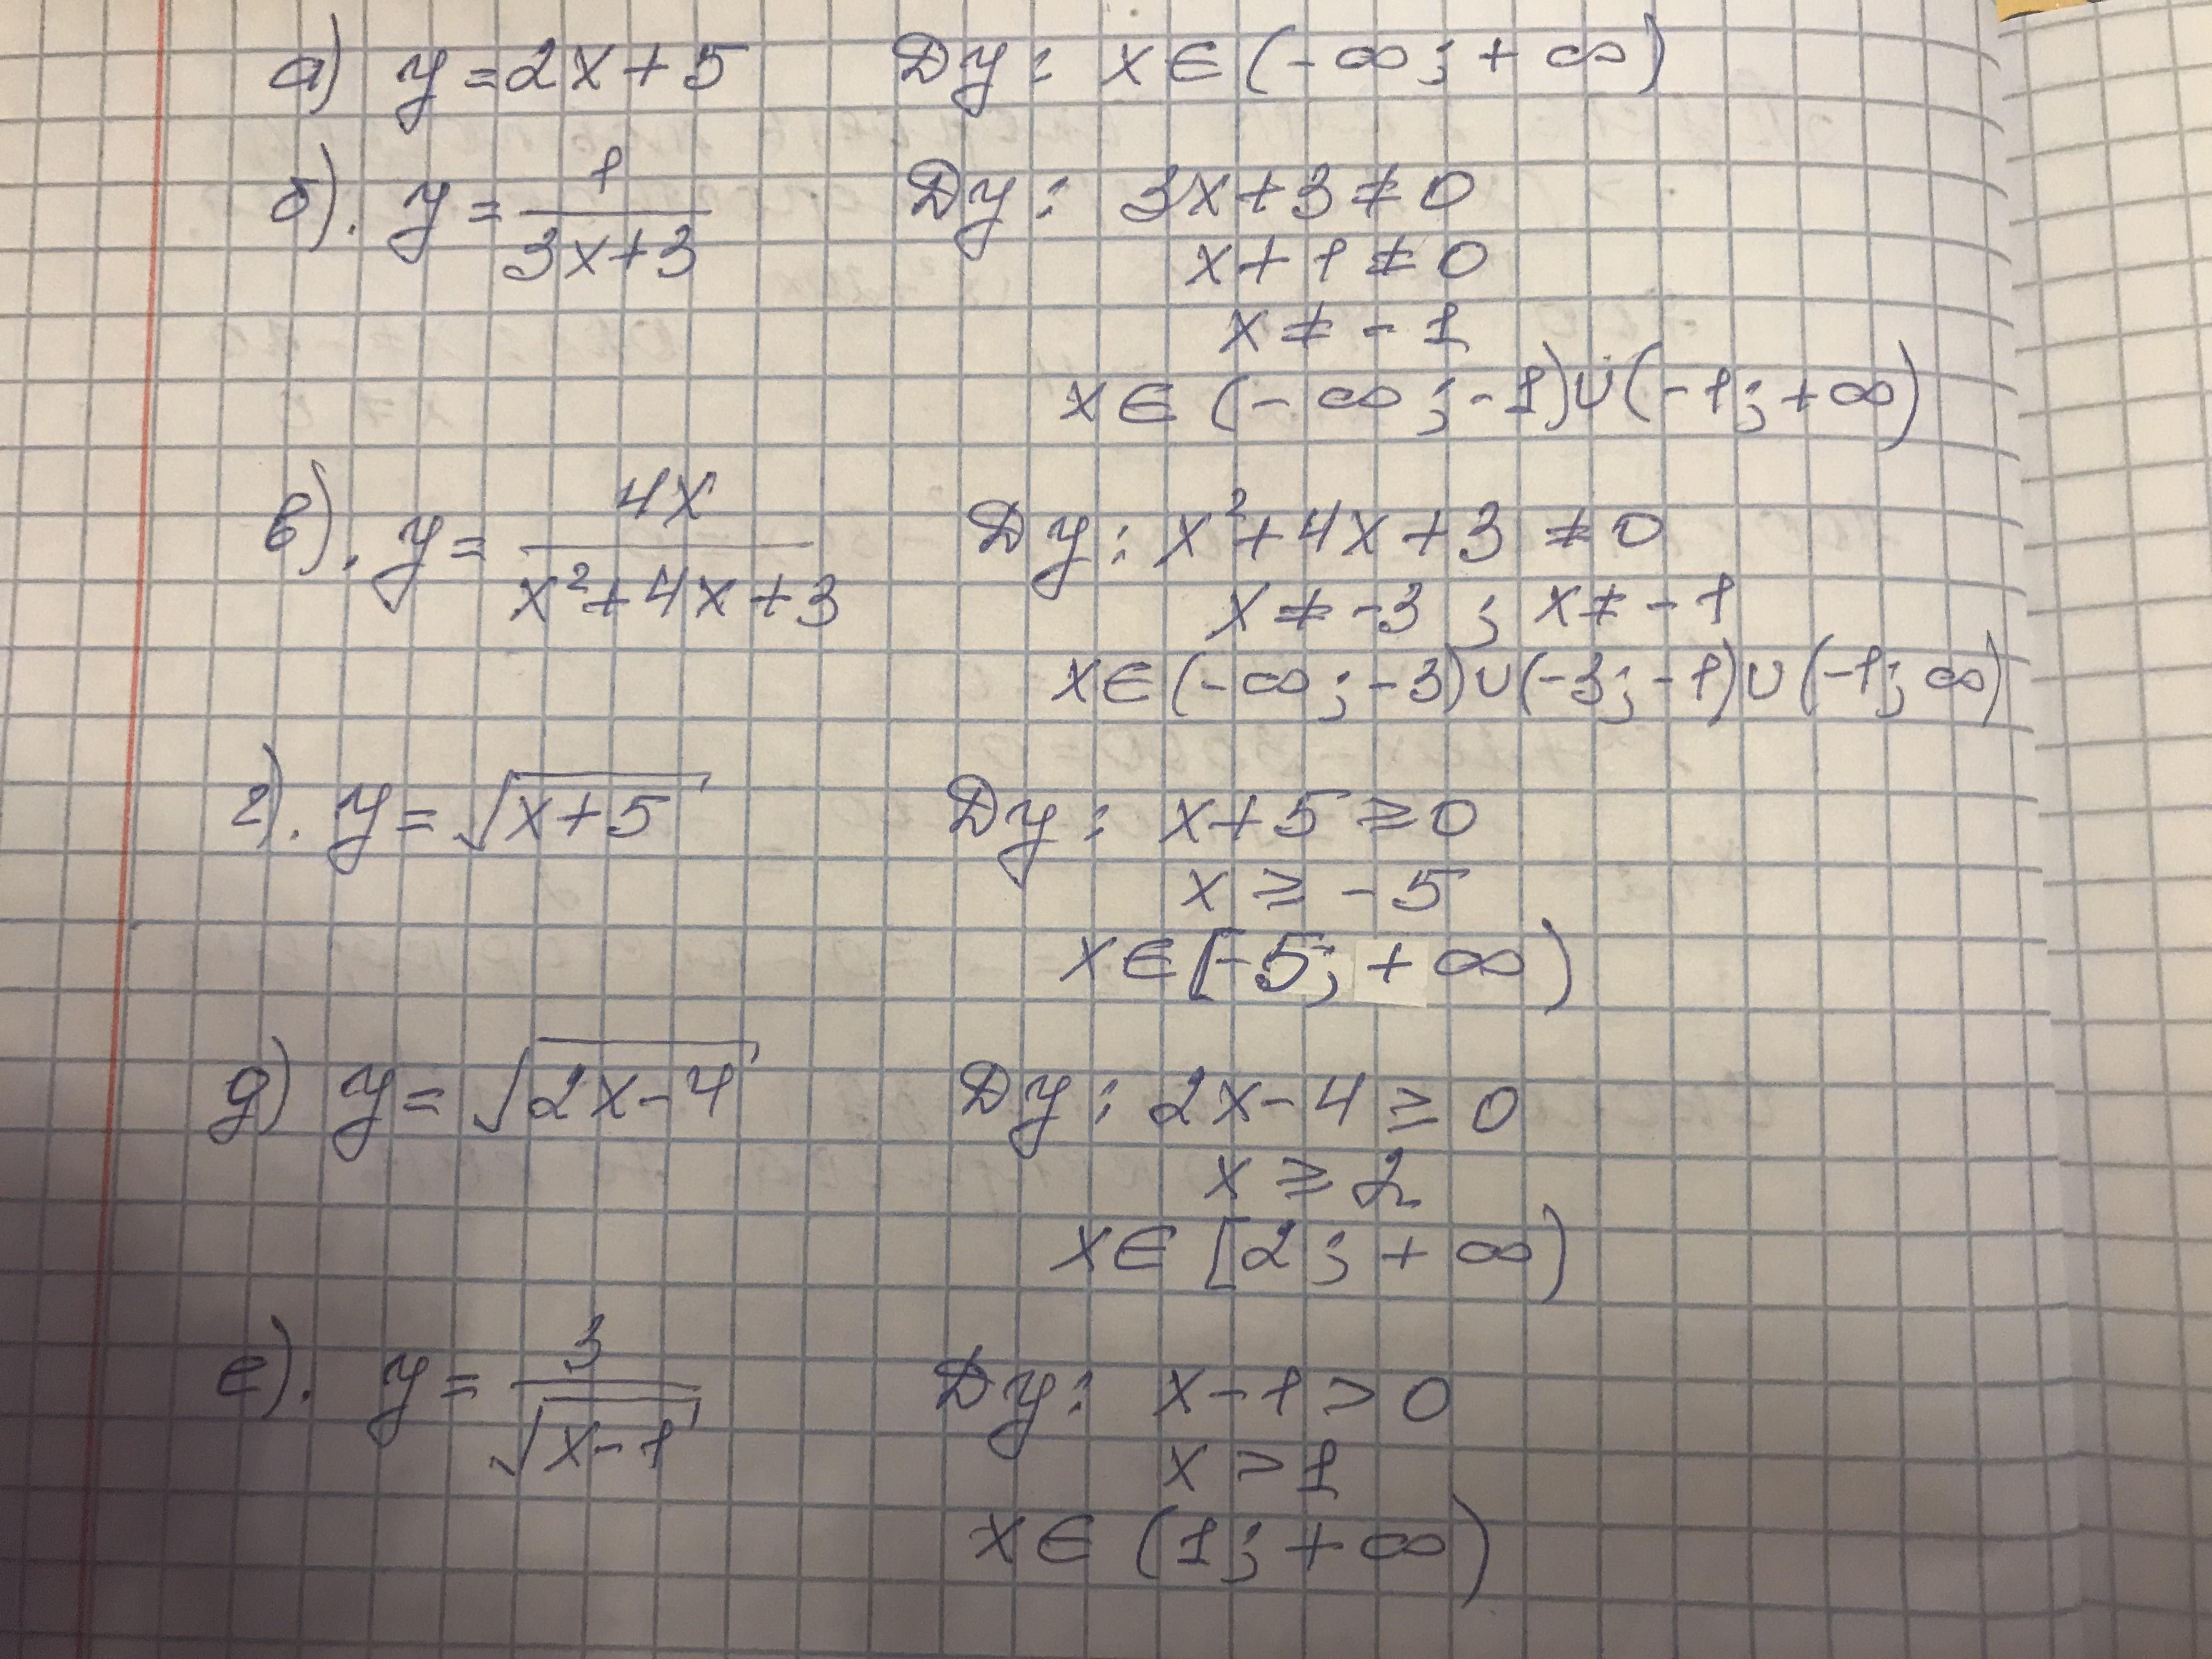 а) y = 2x + 5 Dy: x ∈ (-∞; + ∞)
б). y = 1/(3x+3) Dy: 3x + 3 ≠ 0
x + 1 ≠ 0
x ≠ - 1
x ∈ (- ∞; -1) ∪ (-1; +∞)
в). y = 4x/(x²+4x+3) Dy: x² + 4x + 3 ≠ 0
x ≠ -3 ; x ≠ - 1
x ∈ (-∞; -3) ∪ (-3; -1) ∪ (-1; ∞)
г). y = √(x+5) Dy: x + 5 ⩾ 0
x ⩾ - 5
x ∈ [-5; + ∞)
д) y = √(2x-4) Dy: 2x - 4 ⩾ 0
x ⩾ 2
x ∈ [2; + ∞)
е). y = 3/√(x-1) Dy: x - 1 > 0
x > 1
x ∈ (1; + ∞)